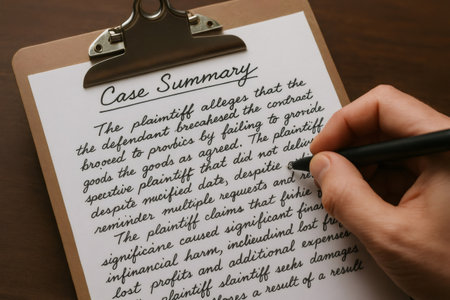 Case Summary
The plaintiff alleges that the
the defendant brecahesed the contract
broceed to provbics by failing to grovide
goods the goods as agreed. The plaintiff
spective plaintiff that did not deliv
despite mucified date, despitie
reminder multiple requests and re
The plaintiff claims that
significane caused significant finan
infinancial harm, inclieudind lost fr
lost profits and additional expenses
The plaintiff slaintiff seeks damages
a result of a result